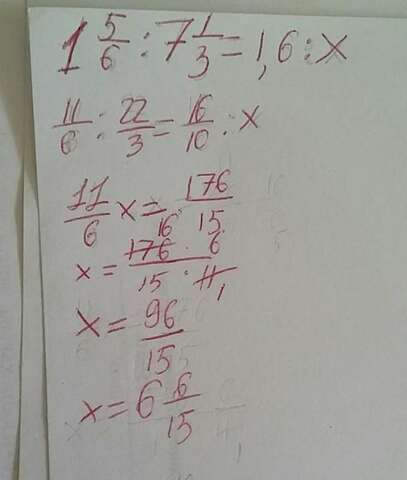 1 5/6 : 7 1/3 = 1,6 : x
11/6 : 22/3 = 16/10 : x
11/6 x = 176/15
x = 176 16 · 6 / 15 · 11 1
x = 96/15
x = 6 6/15